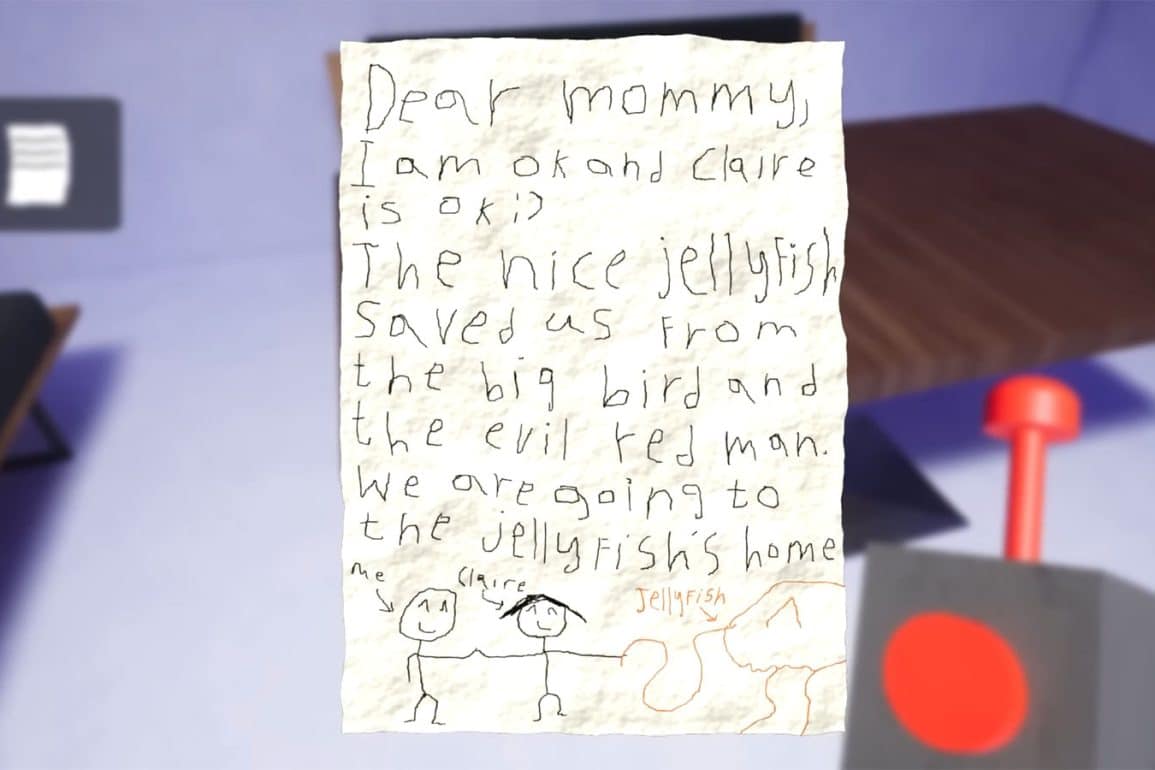 Dear mommy,
I am ok and Claire
is ok :)
The nice jellyfish
saved us from
the big bird and
the evil red man.
We are going to
the jellyfish's home
me
Claire
Jellyfish